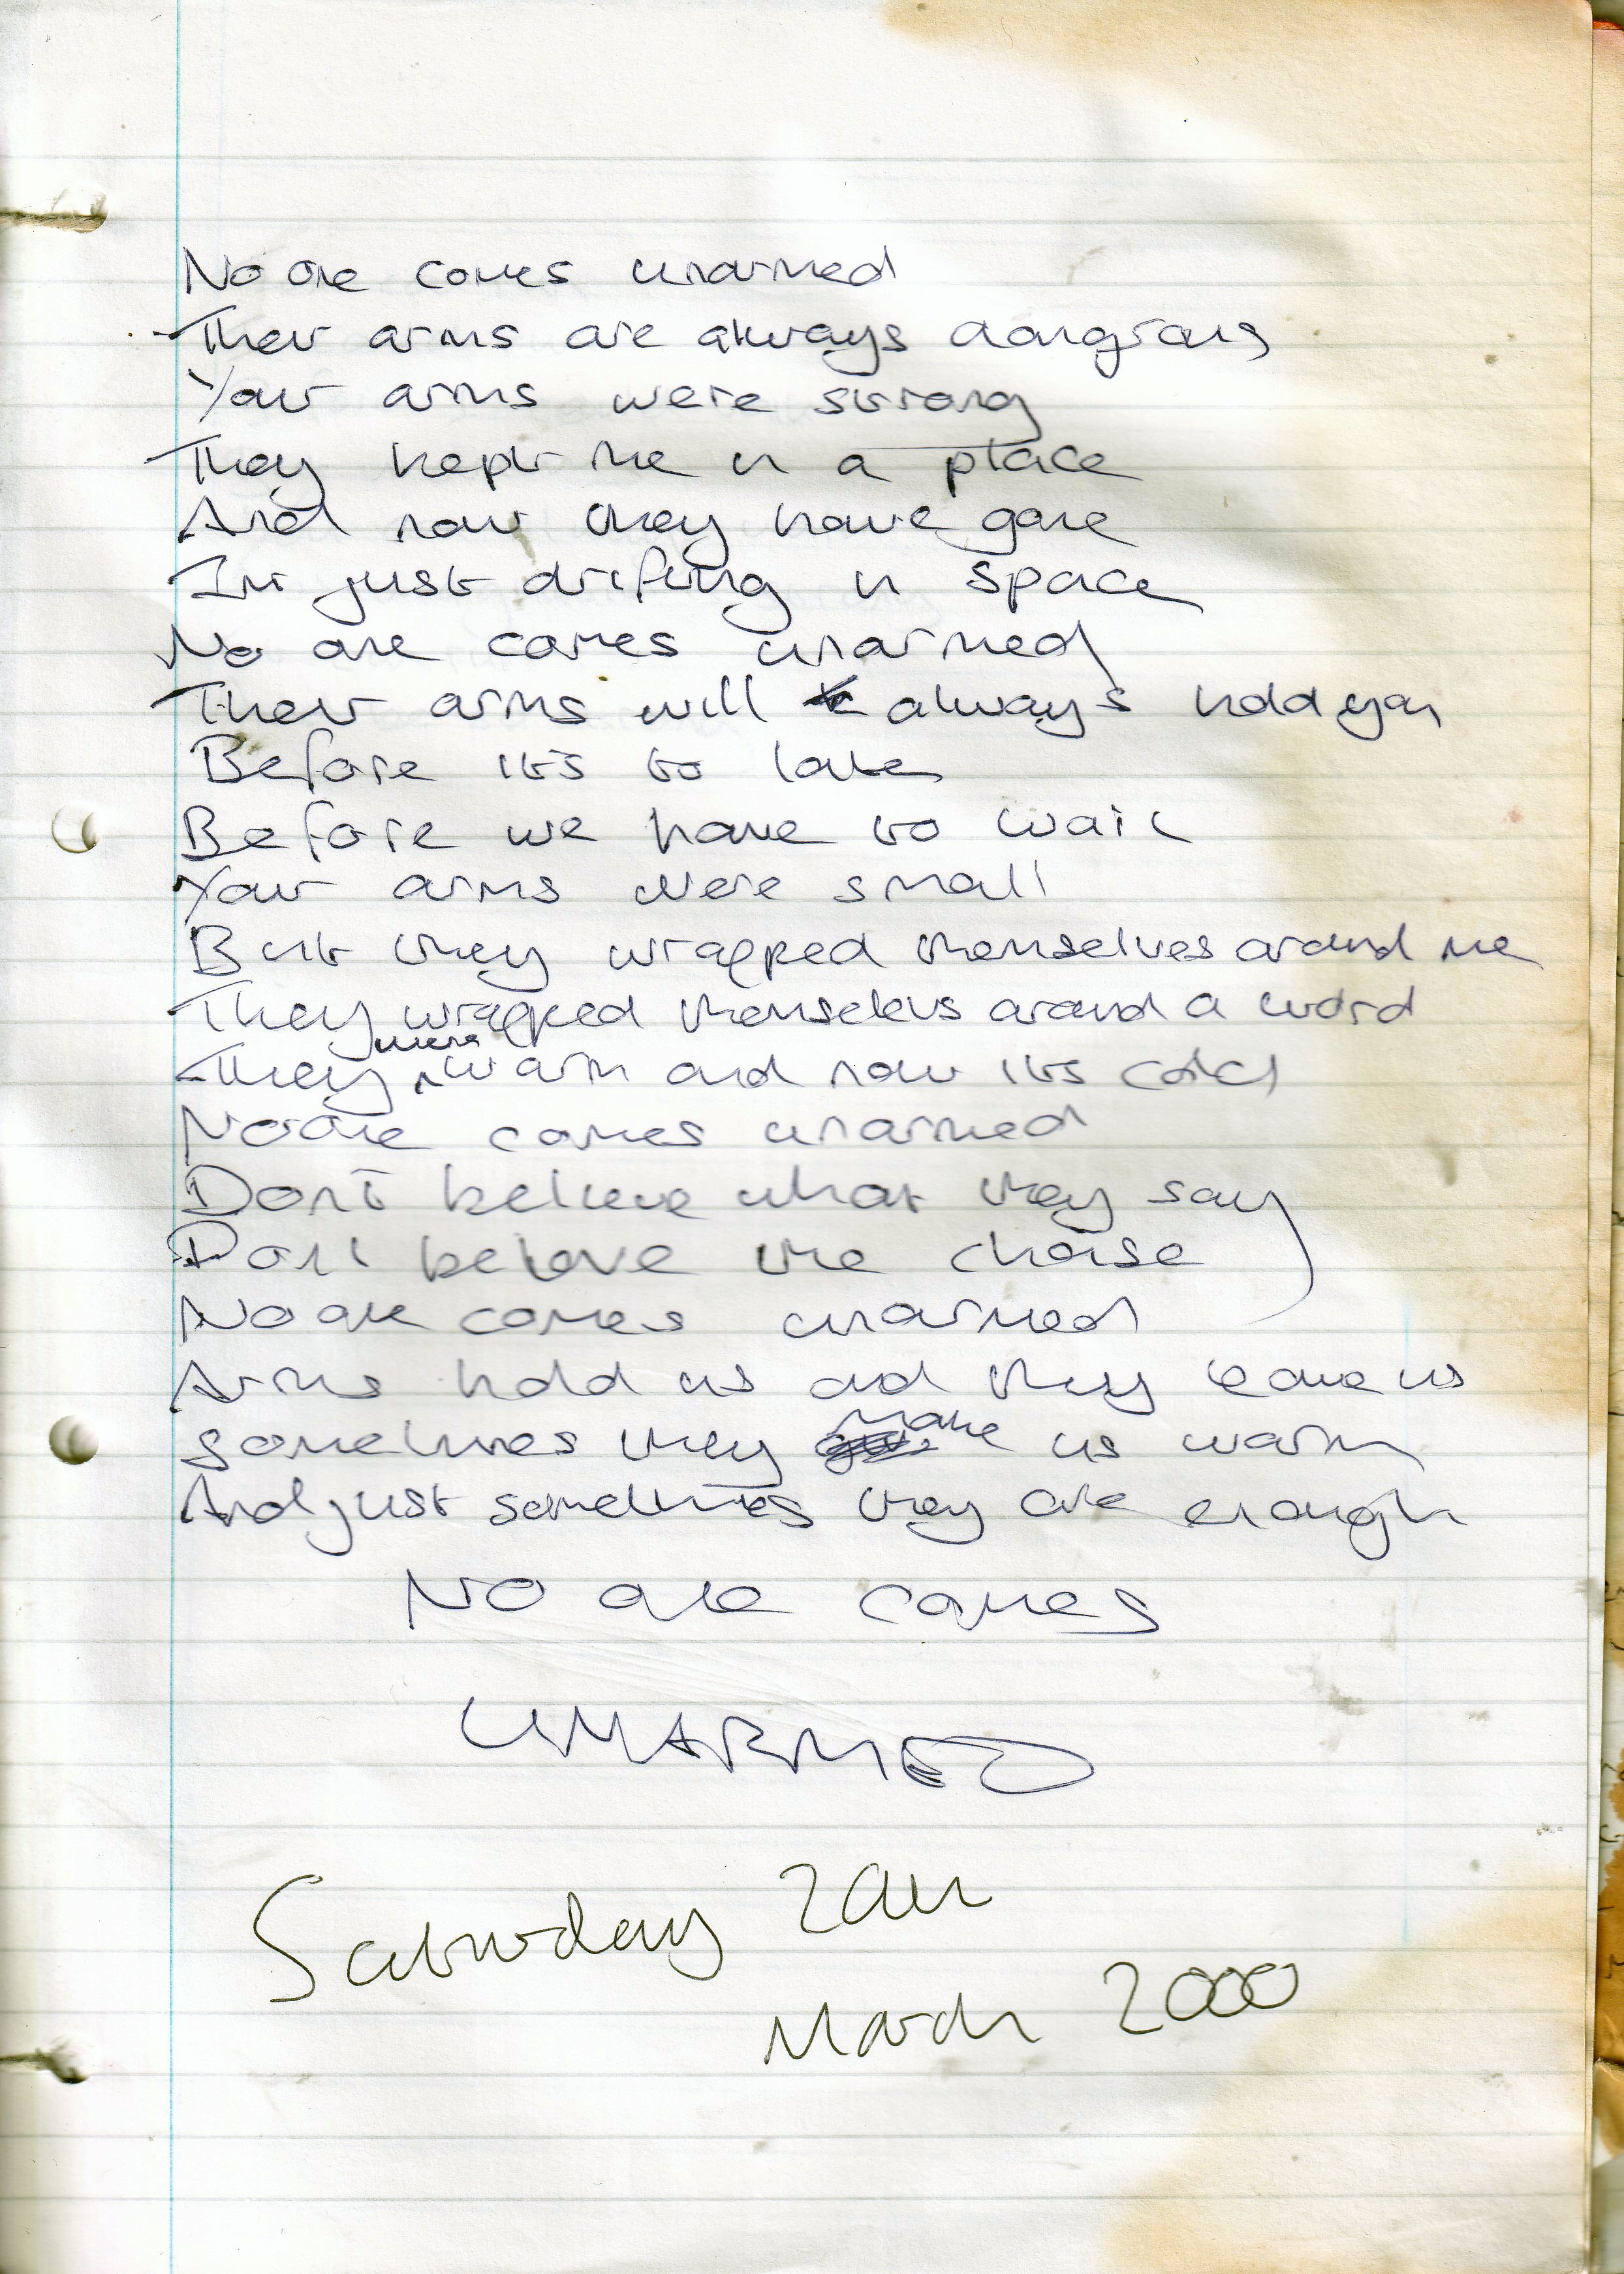 No one comes unarmed
Their arms are always dangrous
Your arms were strong
They kept me in a place
And now they have gone
Im just drifting in space
No one comes unarmed
Their arms will always hold you
Before its to late
Before we have to wait
Your arms were small
But they wrapped themselves around me
They wrapped themselevs around a word
They were warm and now its cold
No one comes unarmed
Dont believe what they say
Dont beleve the choise
No one comes unarmed
Arms hold us and they leave us
Sometimes they make us warm
And just sometimes they are enough
No one comes
UNARMED
Saturday 2am
March 2000